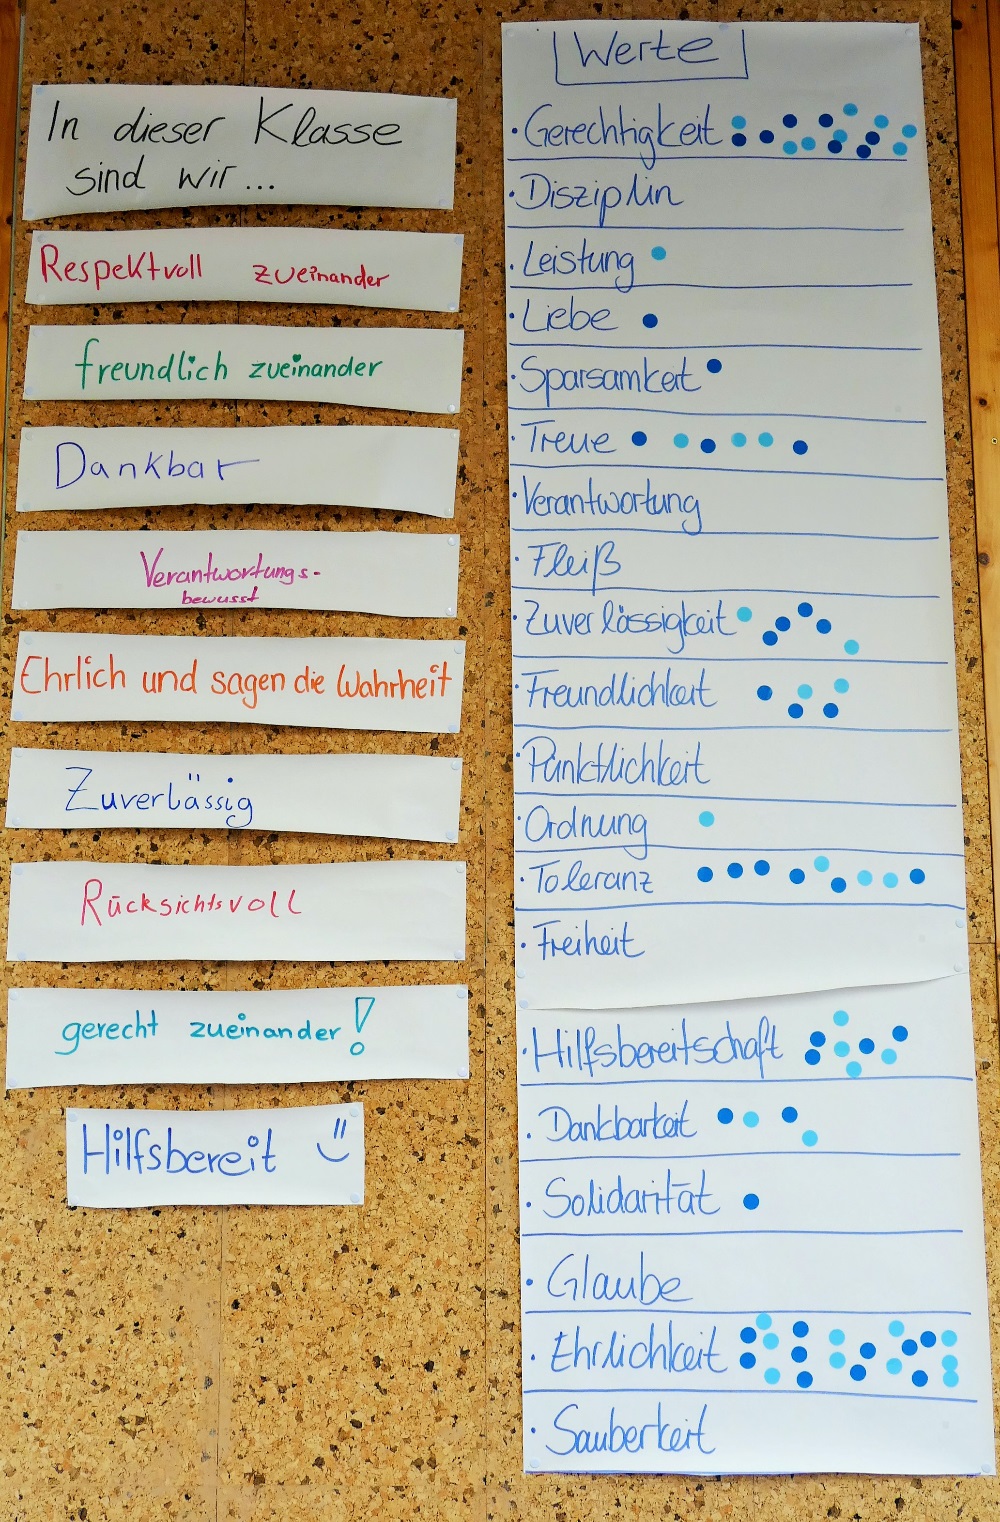 In dieser Klasse
sind wir...
Respektvoll zueinander
freundlich zueinander
Dankbar
Verantwortungs-
bewusst
Ehrlich und sagen die Wahrheit
Zuverlässig
Rücksichtsvoll
gerecht zueinander!
Hilfsbereit
Werte
· Gerechtigkeit
· Disziplin
· Leistung
· Liebe
· Sparsamkeit
· Treue
· Verantwortung
· Fleiß
· Zuverlässigkeit
· Freundlichkeit
· Pünktlichkeit
· Ordnung
· Toleranz
· Freiheit
· Hilfsbereitschaft
· Dankbarkeit
· Solidarität
· Glaube
· Ehrlichkeit
· Sauberkeit